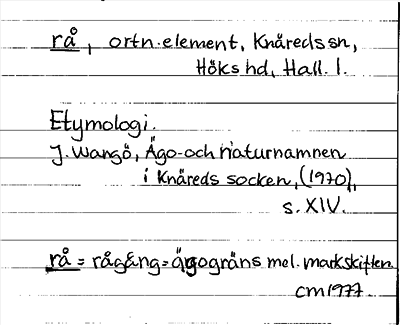 rå, ortn.element, Knäreds sn,
Höks hd, Hall. l.
Etymologi.
J. Wangö, Ägo- och naturnamnen
i Knäreds socken, (1970),
s. XIV.
rå = rågång = ägogräns mel. markskiften.
cm 1977